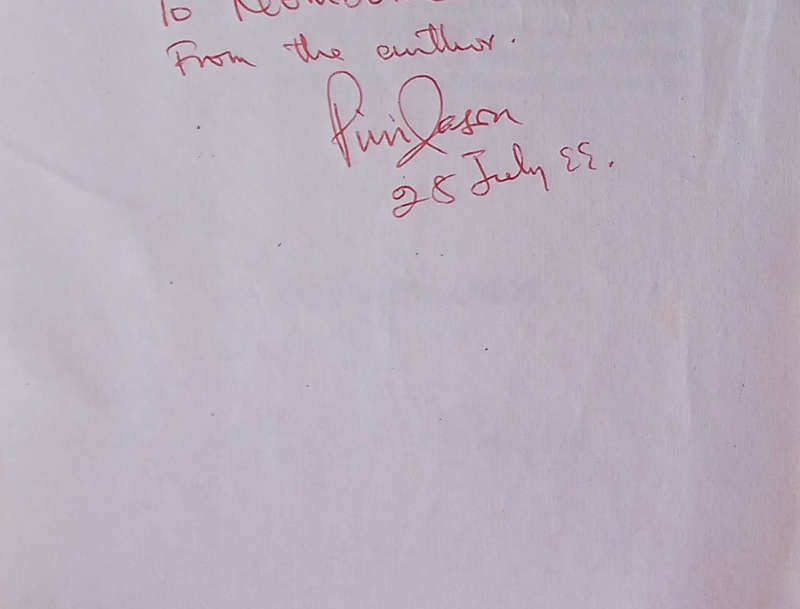 To
From the author.
Pini Jason
28 July